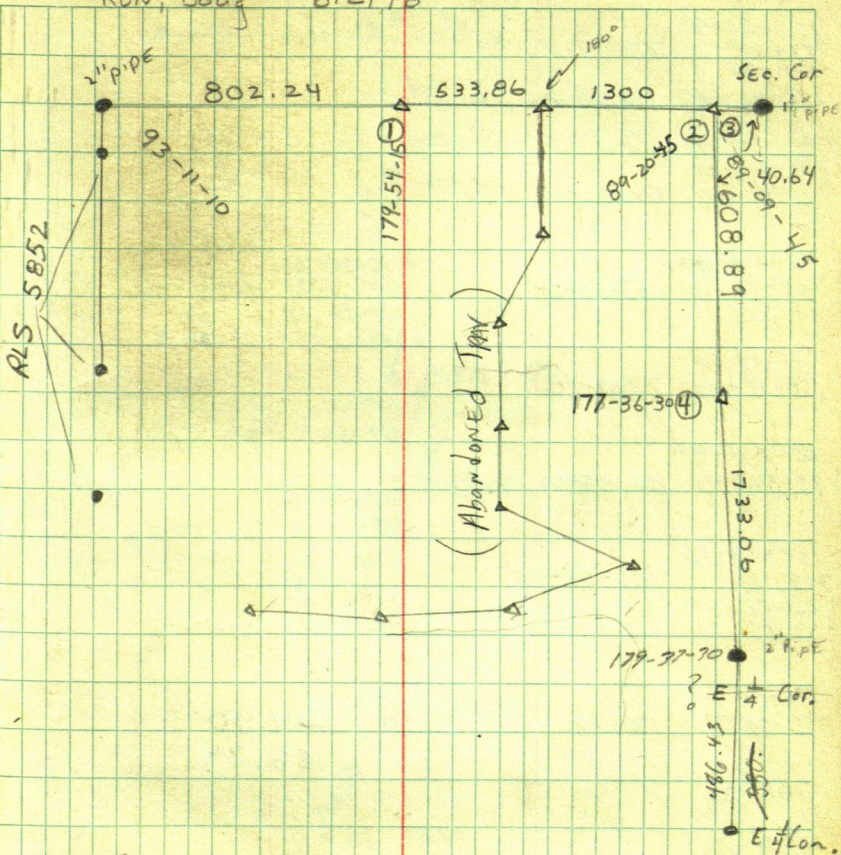 Ron, Doug
2" PIPE
802.24
533.86
180°
1300
SEC. Cor
PIPE
93-11-10
①
179-54-15
89-20-45
②
③
40.64
89-09-45
608.89
RLS 5852
(Abandoned Trav)
177-36-30 ④
1733.06
179-37-30
2" PIPE
? E 1/4 Cor.
486.43
E 1/4 Cor.